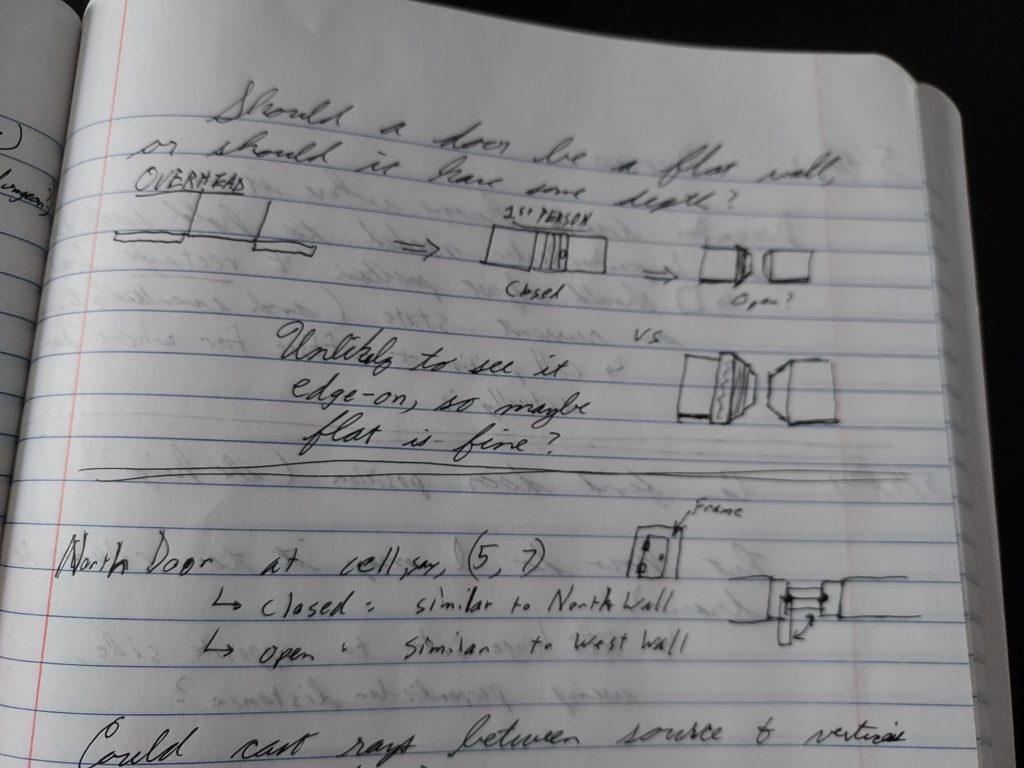 Should a door be a flat wall,
or should it have some depth?
OVERHEAD
1ST PERSON
Closed
Open?
vs
Unlikely to see it
edge-on, so maybe
flat is fine?
Frame
North Door at cell, say, (5, 7)
↳ closed: similar to North Wall
↳ open: similar to West Wall
Could cast rays between source &